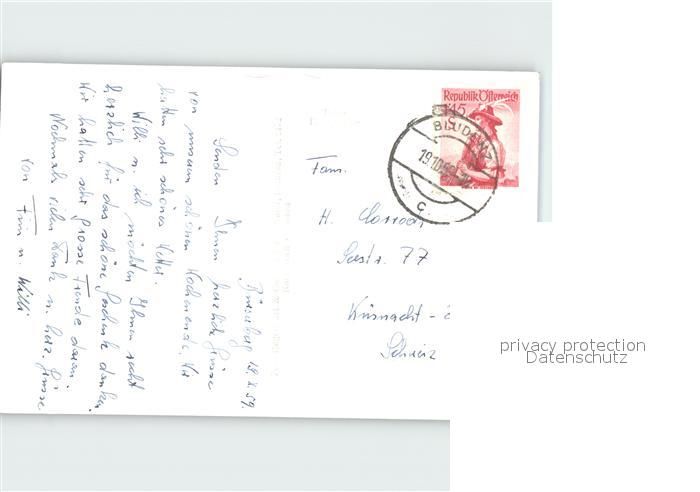 Bürserberg 18.X.59.
Senden Ihnen herzliche Grüsse
von unserem schönen Wochenende. Wir
hatten sehr schönes Wetter.
Willi u. ich möchten Ihnen recht
herzlich für das schöne Geschenk danken.
Wir hatten sehr grosse Freude daran.
Nochmals vielen Dank u. herz. Grüsse
von Finn u. Willi
Republik Österreich
145
BLUDENZ
19.10.59-12
c
Fam.
H.
Seestr. 77
Küsnacht -
Schweiz
privacy protection
Datenschutz